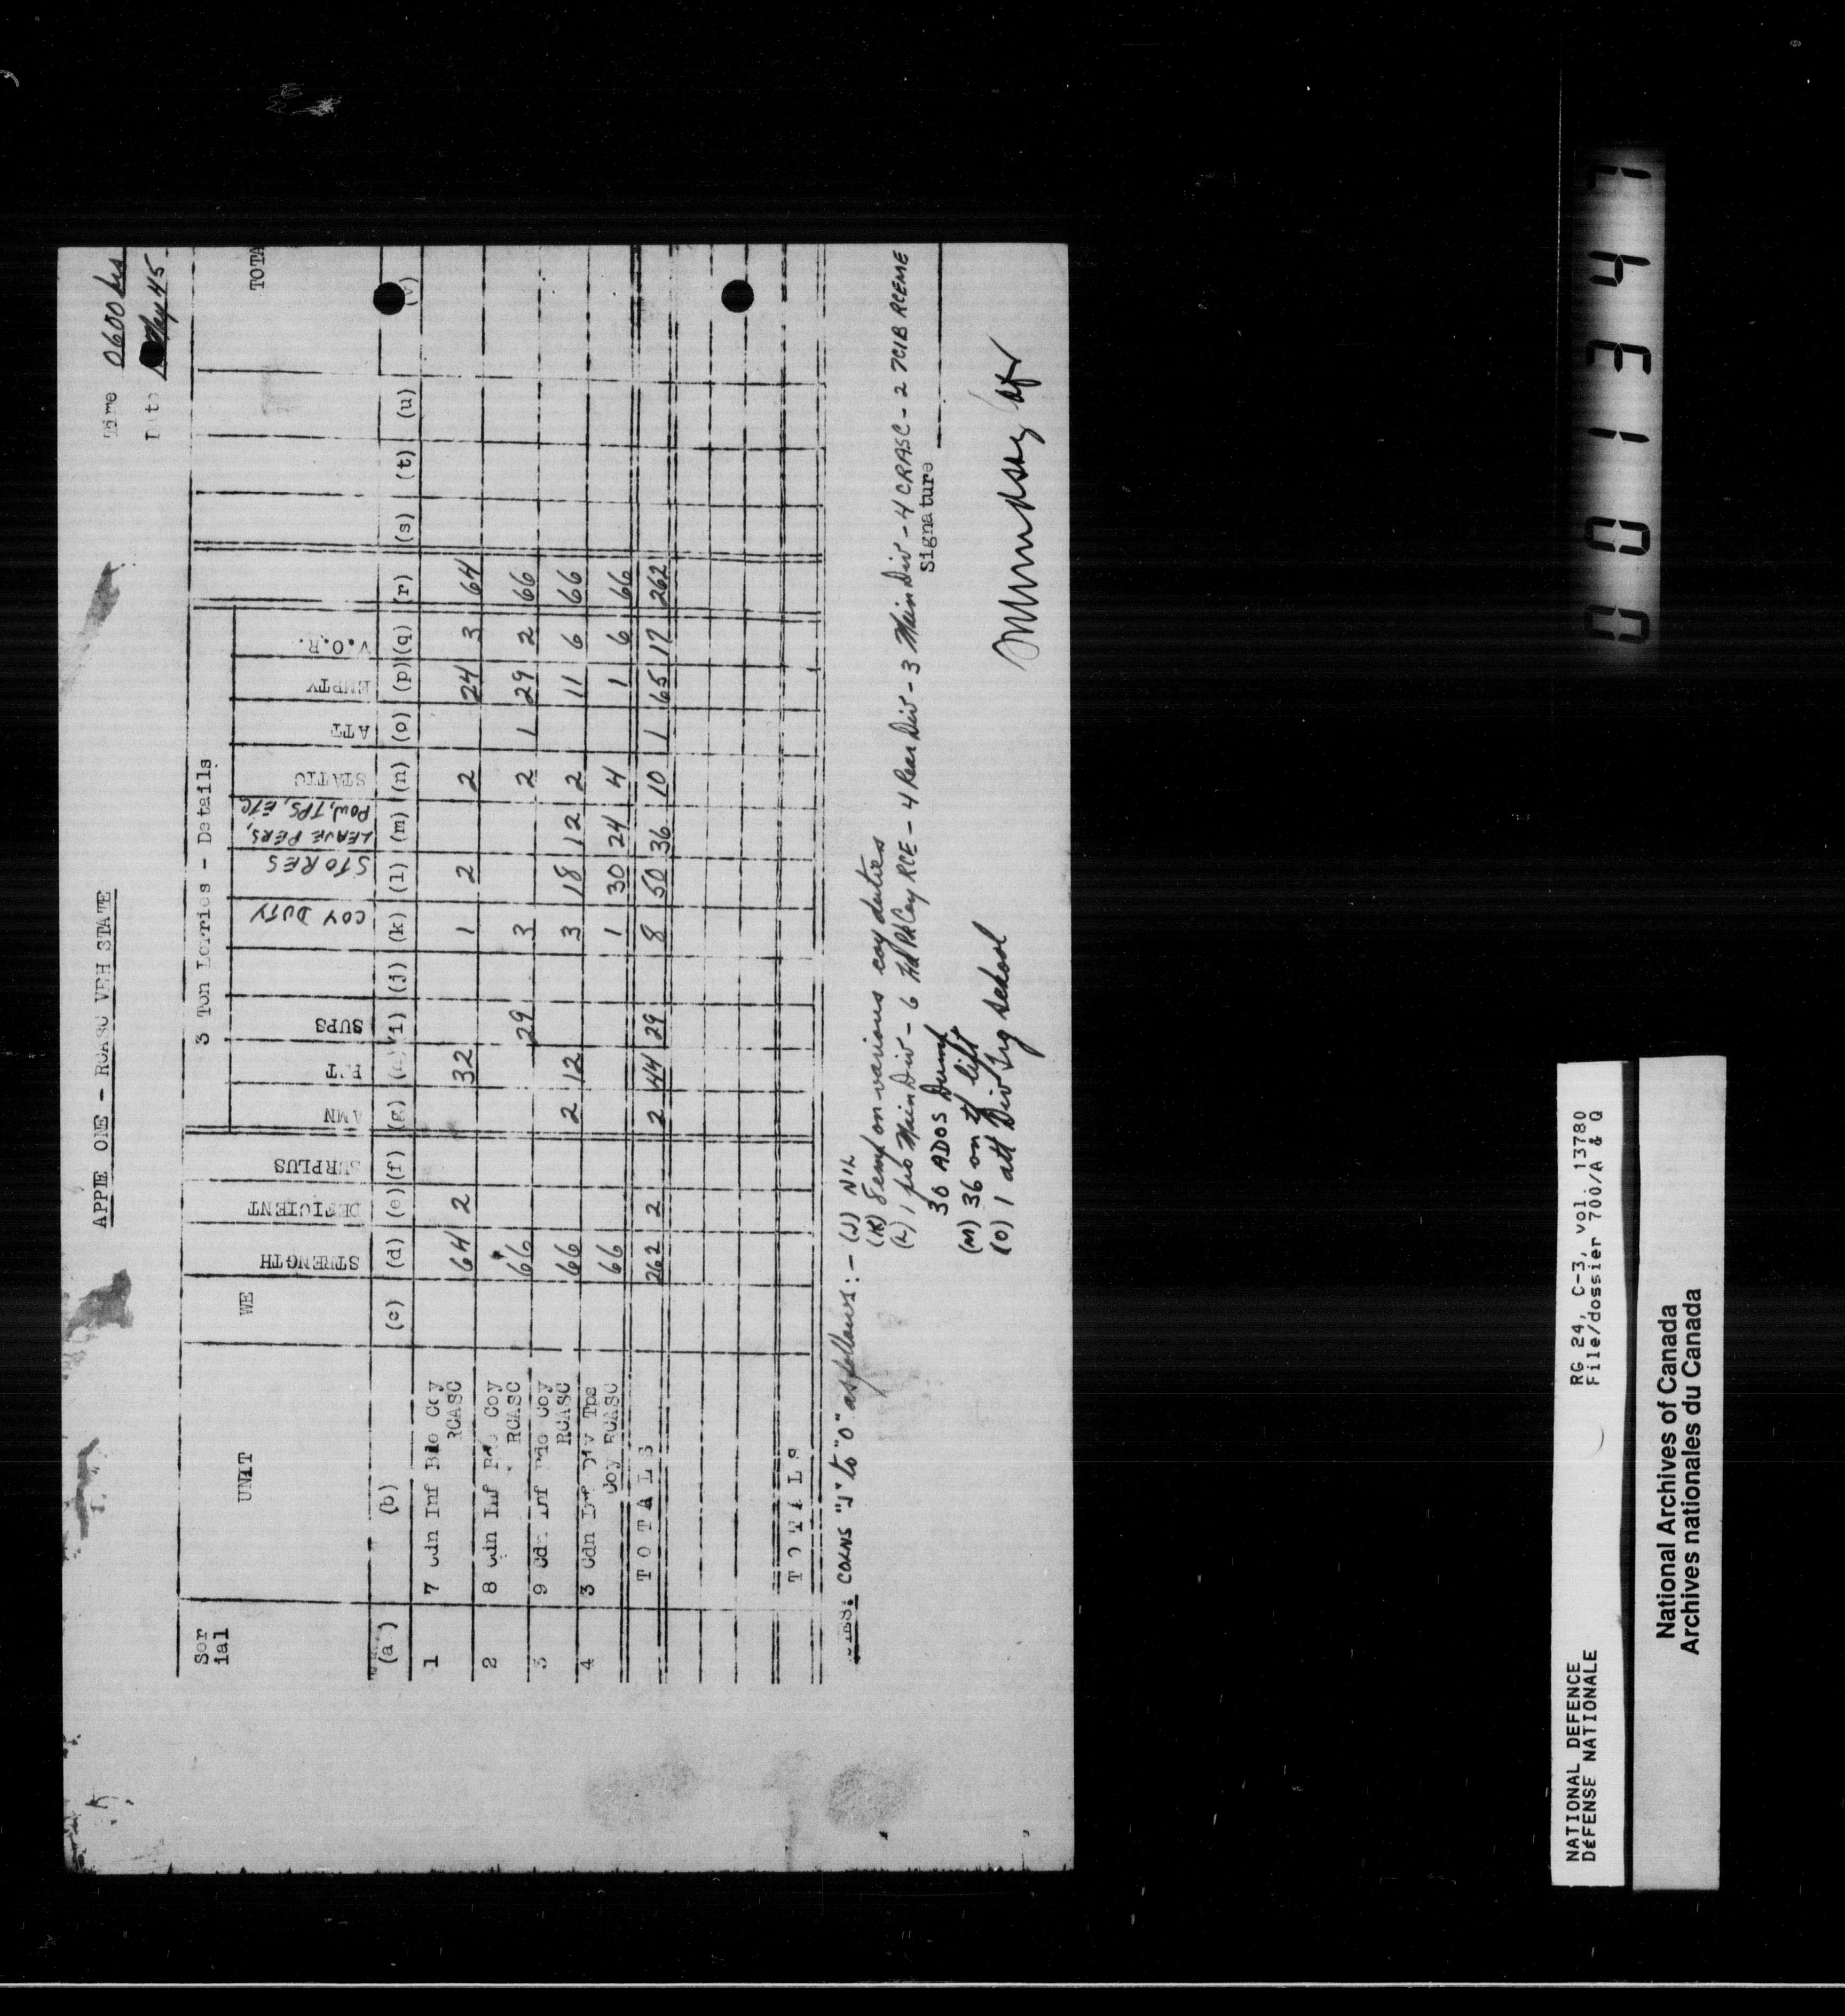 APPIE ONE - RCASC VEH STATE
Time 0600 hrs
May 45
Ser ial
UNIT
WE
STRENGTH
DEFICIENT
SURPLUS
3 Ton Lorries - Details
AMN
SUPS
COY DUTY
STORES
LEAVE PERS, POW, TPS, ETC
STATIC
ATT
EMPTY
V.O.R.
TOTA
(a) (b) (c) (d) (e) (f) (g) (i) (j) (k) (l) (m) (n) (o) (p) (q) (r) (s) (t) (u) (v)
1 7 Cdn Inf Bde Coy RCASC 64 2 32 1 2 2 24 3 64
2 8 Cdn Inf Bde Coy RCASC 66 29 3 2 1 29 2 66
3 9 Cdn Inf Bde Coy RCASC 66 2 12 3 18 12 2 11 6 66
4 3 Cdn Inf Div Tps Coy RCASC 66 1 30 24 4 1 6 66
TOTALS 262 2 2 44 29 8 50 36 10 1 65 17 262
TOTALS
COLNS "J" to "O" as follows:- (J) NIL
(K) 8 emp on various coy duties
(L) 1 Main Div - 6 Fd Pk Coy RCE - 4 Rear Div - 3 Main Div - 4 CRASC - 2 7CIB RCEME
30 ADOS Dump
Signature
(M) 36 on lift
(O) 1 att Div Trg School
0 0 1 3 4 7
NATIONAL DEFENCE RG 24, C-3, vol. 13780
DéFENSE NATIONALE File/dossier 700/A & Q
National Archives of Canada
Archives nationales du Canada